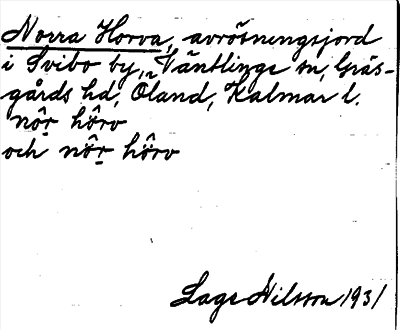 Norra Horva, avrösningsjord
i Svibo by, Väntlinge sn, Gräs-
gårds hd, Öland, Kalmar l.
nôr hôrv
och nôr hôrv
Lage Nilsson 1931